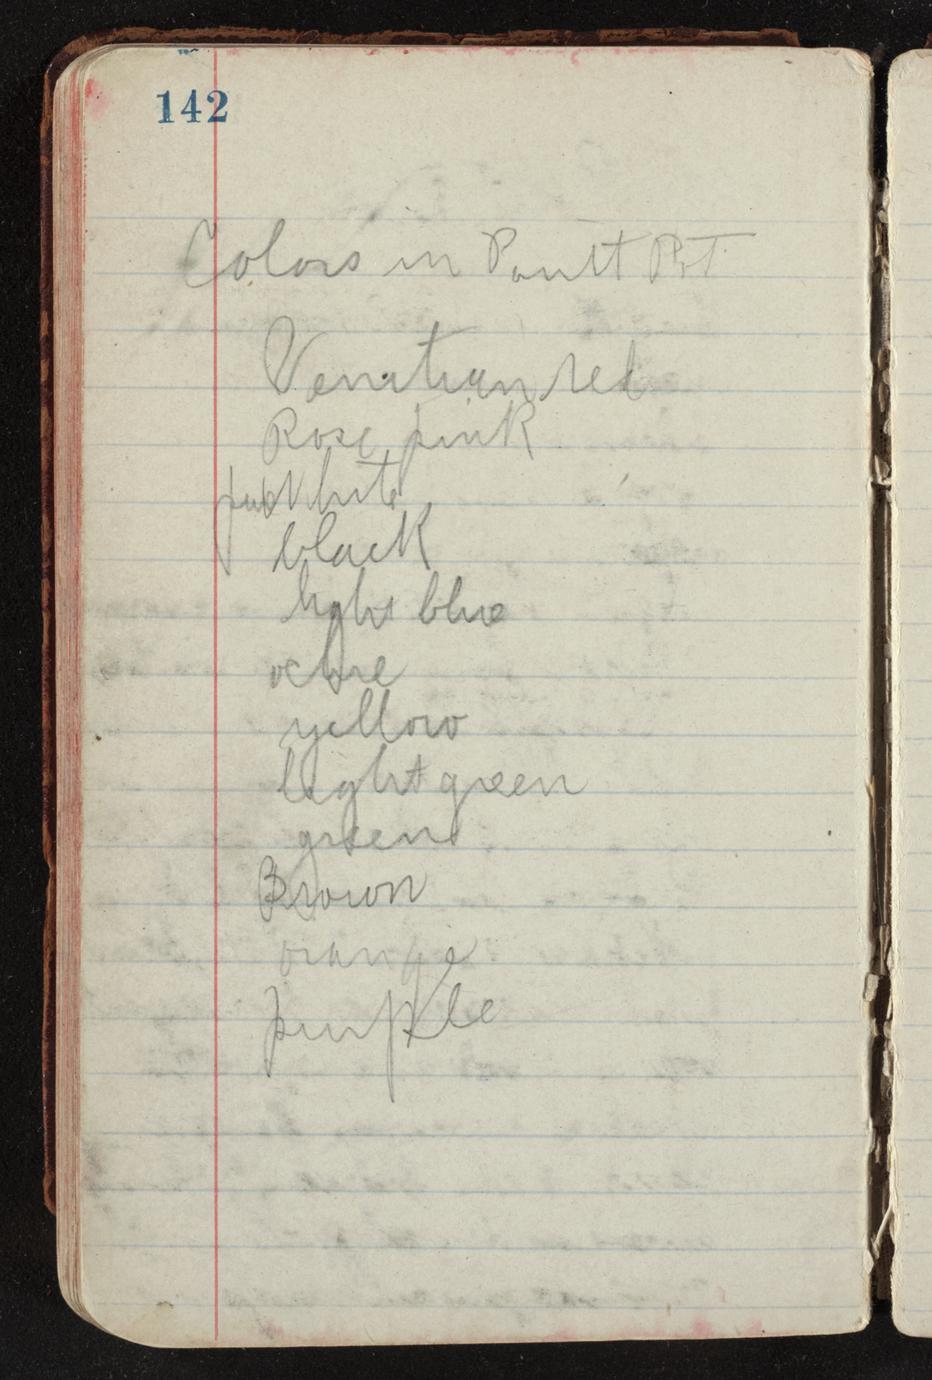 142
Colors in
Venetian red
Rose pink
White
black
light blue
ochre
yellow
light green
green
Brown
orange
purple